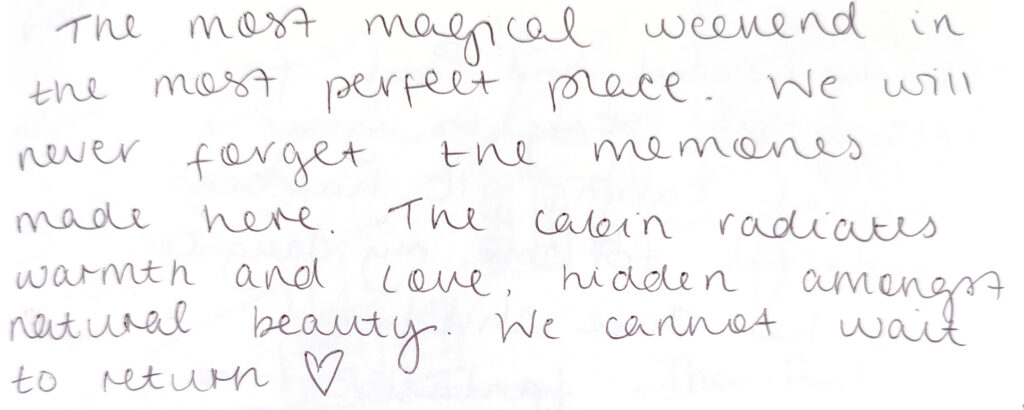 The most magical weekend in
the most perfect place. We will
never forget the memories
made here. The cabin radiates
warmth and love, hidden amongst
natural beauty. We cannot wait
to return ♡